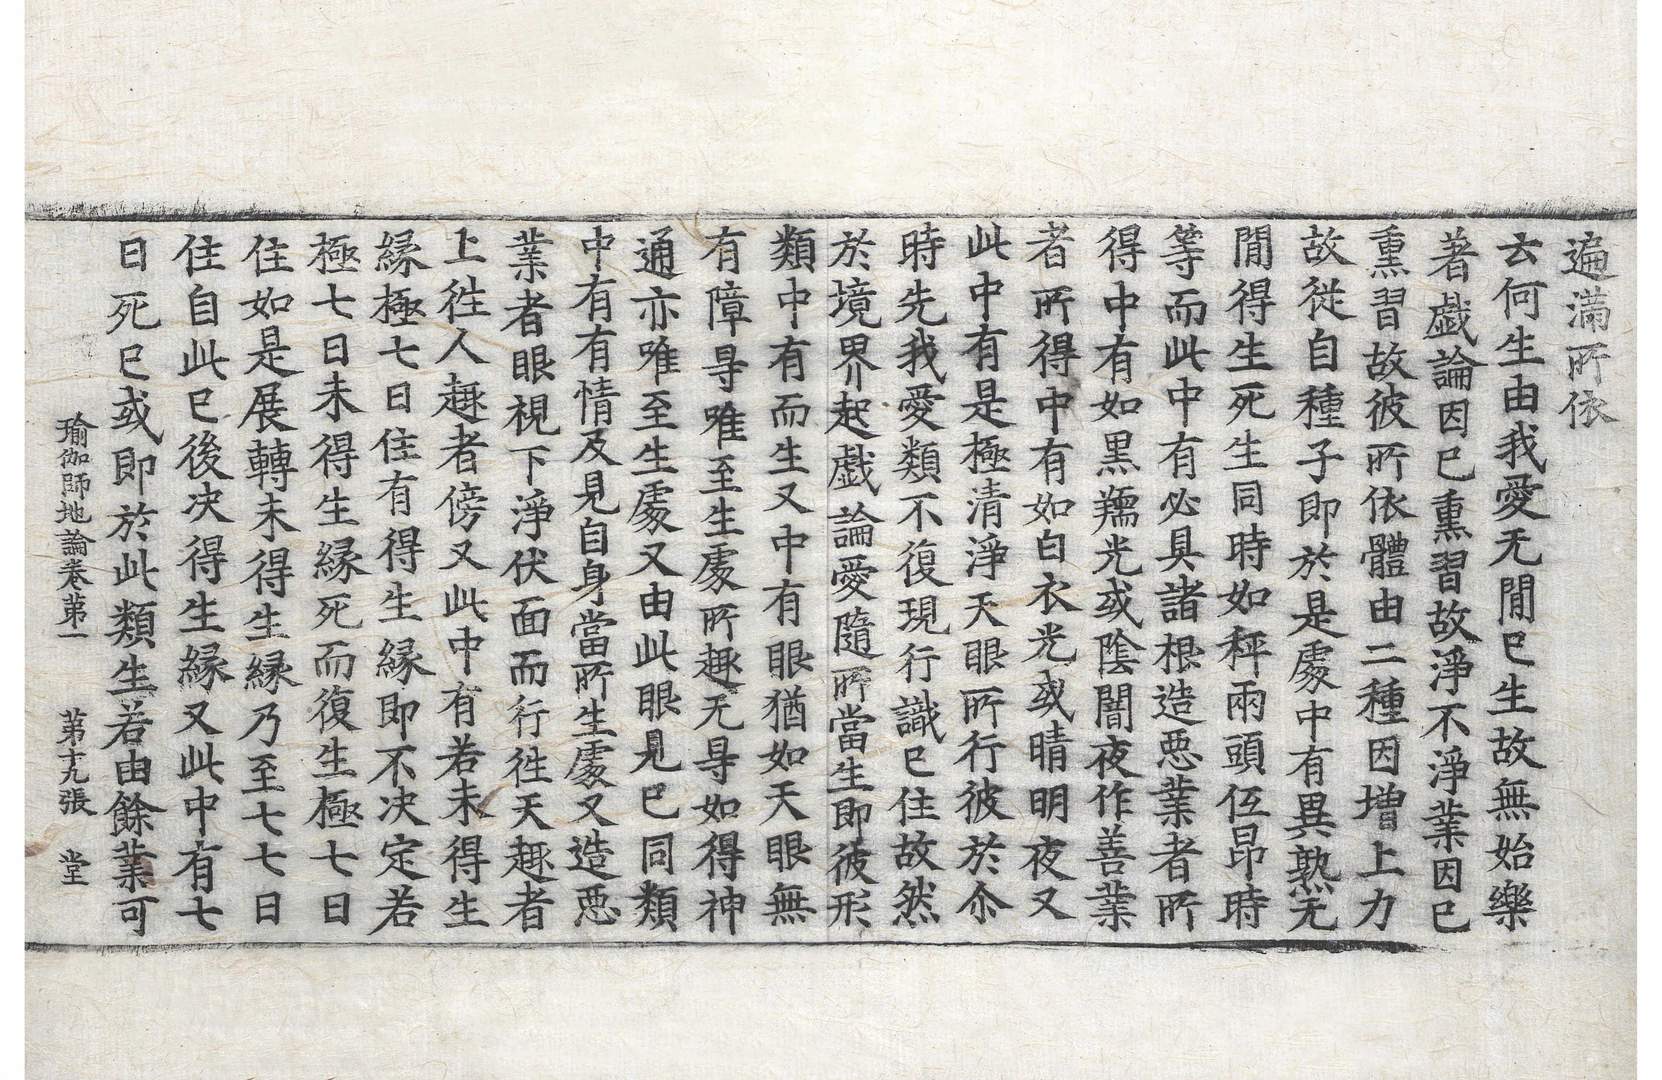 遍滿所依
云何生由我愛无閒已生故無始樂
著戱論因已熏習故淨不淨業因已
熏習故彼所依體由二種因增上力
故從自種子即於是處中有異熟无
閒得生死生同時如秤兩頭伍昂時
等而此中有必具諸根造惡業者所
得中有如黑羺光或陰闇夜作善業
者所得中有如白衣光或晴明夜又
此中有是極清淨天眼所行彼於尒
時先我愛類不復現行識已住故然
於境界起戱論愛隨所當生即彼形
類中有而生又中有眼猶如天眼無
有障㝵唯至生處所趣无㝵如得神
通亦唯至生處又由此眼見已同類
中有有情及見自身當所生處又造惡
業者眼視下淨伏面而行徃天趣者
上徃人趣者傍又此中有若未得生
緣極七日住有得生緣即不决定若
極七日未得生緣死而復生極七日
住如是展轉未得生緣乃至七七日
住自此已後决得生緣又此中有七
日死已或即於此類生若由餘業可
瑜伽師地論卷第一 第十九張 堂